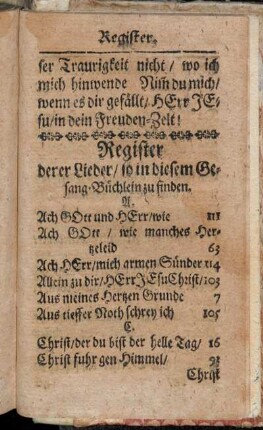 Register.
ser Traurigkeit nicht/ wo ich
mich hinwende Nim̃ du mich/
wenn es dir gefällt/ HErr JE-
su/ in dein Freuden-Zelt!
Register
derer Lieder/ so in diesem Ge-
sang-Büchlein zu finden.
A.
Ach GOtt und HErr/wie 111
Ach GOtt / wie manches Her-
tzeleid 63
Ach HErr/mich armen Sünder 114
Allein zu dir/HErr JEsu Christ/ 103
Aus meines Hertzen Grunde 7
Aus tieffer Noth schrey ich 105
C.
Christ/der du bist der helle Tag/ 16
Christ fuhr gen Himmel/ 92
Christ